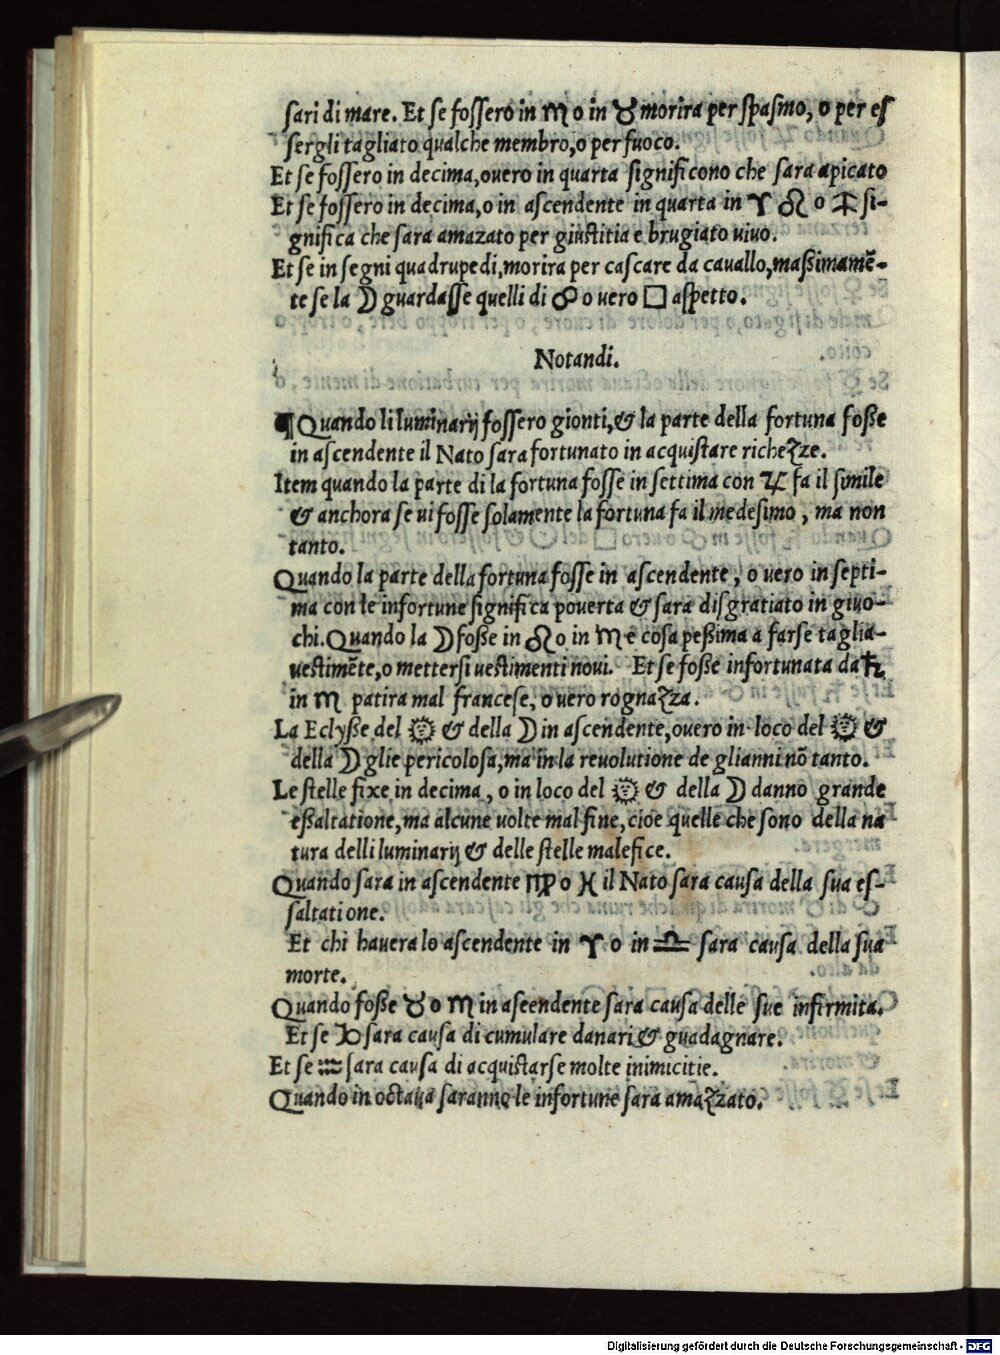 sari di mare. Et se fossero in ♏ o in ♉ morira per spasmo, o per es
sergli tagliato qualche membro, o per fuoco.
Et se fossero in decima, overo in quarta significono che sara apicato
Et se fossero in decima, o in ascendente in quarta in ♈ ♌ o ♐ si-
gnifica che sara amazato per giustitia e brugiato uiuo.
Et se in segni quadrupedi, morira per cascare da cauallo, maßimamē-
te se la ☽ guardasse quelli di ☍ o uero □ aspetto.
Notandi.
¶ Quando li luminarij fossero gionti, & la parte della fortuna foße
in ascendente il Nato sara fortunato in acquistare richezze.
Item quando la parte di la fortuna fosse in settima con ♃ fa il simile
& anchora se ui fosse solamente la fortuna fa il medesimo, ma non
tanto.
Quando la parte della fortuna fosse in ascendente, o uero in septi-
ma con le infortune significa pouerta & sara disgratiato in giuo-
chi. Quando la ☽ foße in ♌ o in ♏ e cosa peßima a farse taglia-
uestimēte, o mettersi uestimenti noui. Et se foße infortunata da ♄
in ♏ patira mal francese, o uero rognazza.
La Eclyße del ☉ & della ☽ in ascendente, ouero in loco del ☉ &
della ☽ glie pericolosa, ma in la reuolutione de glianni nō tanto.
Le stelle fixe in decima, o in loco del ☉ & della ☽ danno grande
eßaltatione, ma alcune uolte mal fine, cioe quelle che sono della na
tura delli luminarij & delle stelle malefice.
Quando sara in ascendente ♍ o ♓ il Nato sara causa della sua es-
saltatione.
Et chi hauera lo ascendente in ♈ o in ♎ sara causa della sua
morte.
Quando foße ♉ o ♏ in aseendente sara causa delle sue infirmita.
Et se ♑ sara causa di cumulare danari & guadagnare.
Et se ♒ sara causa di acquistarse molte inimicitie.
Quando in octaua saranno le infortune sara amazzato.
Digitalisierung gefördert durch die Deutsche Forschungsgemeinschaft - DFG